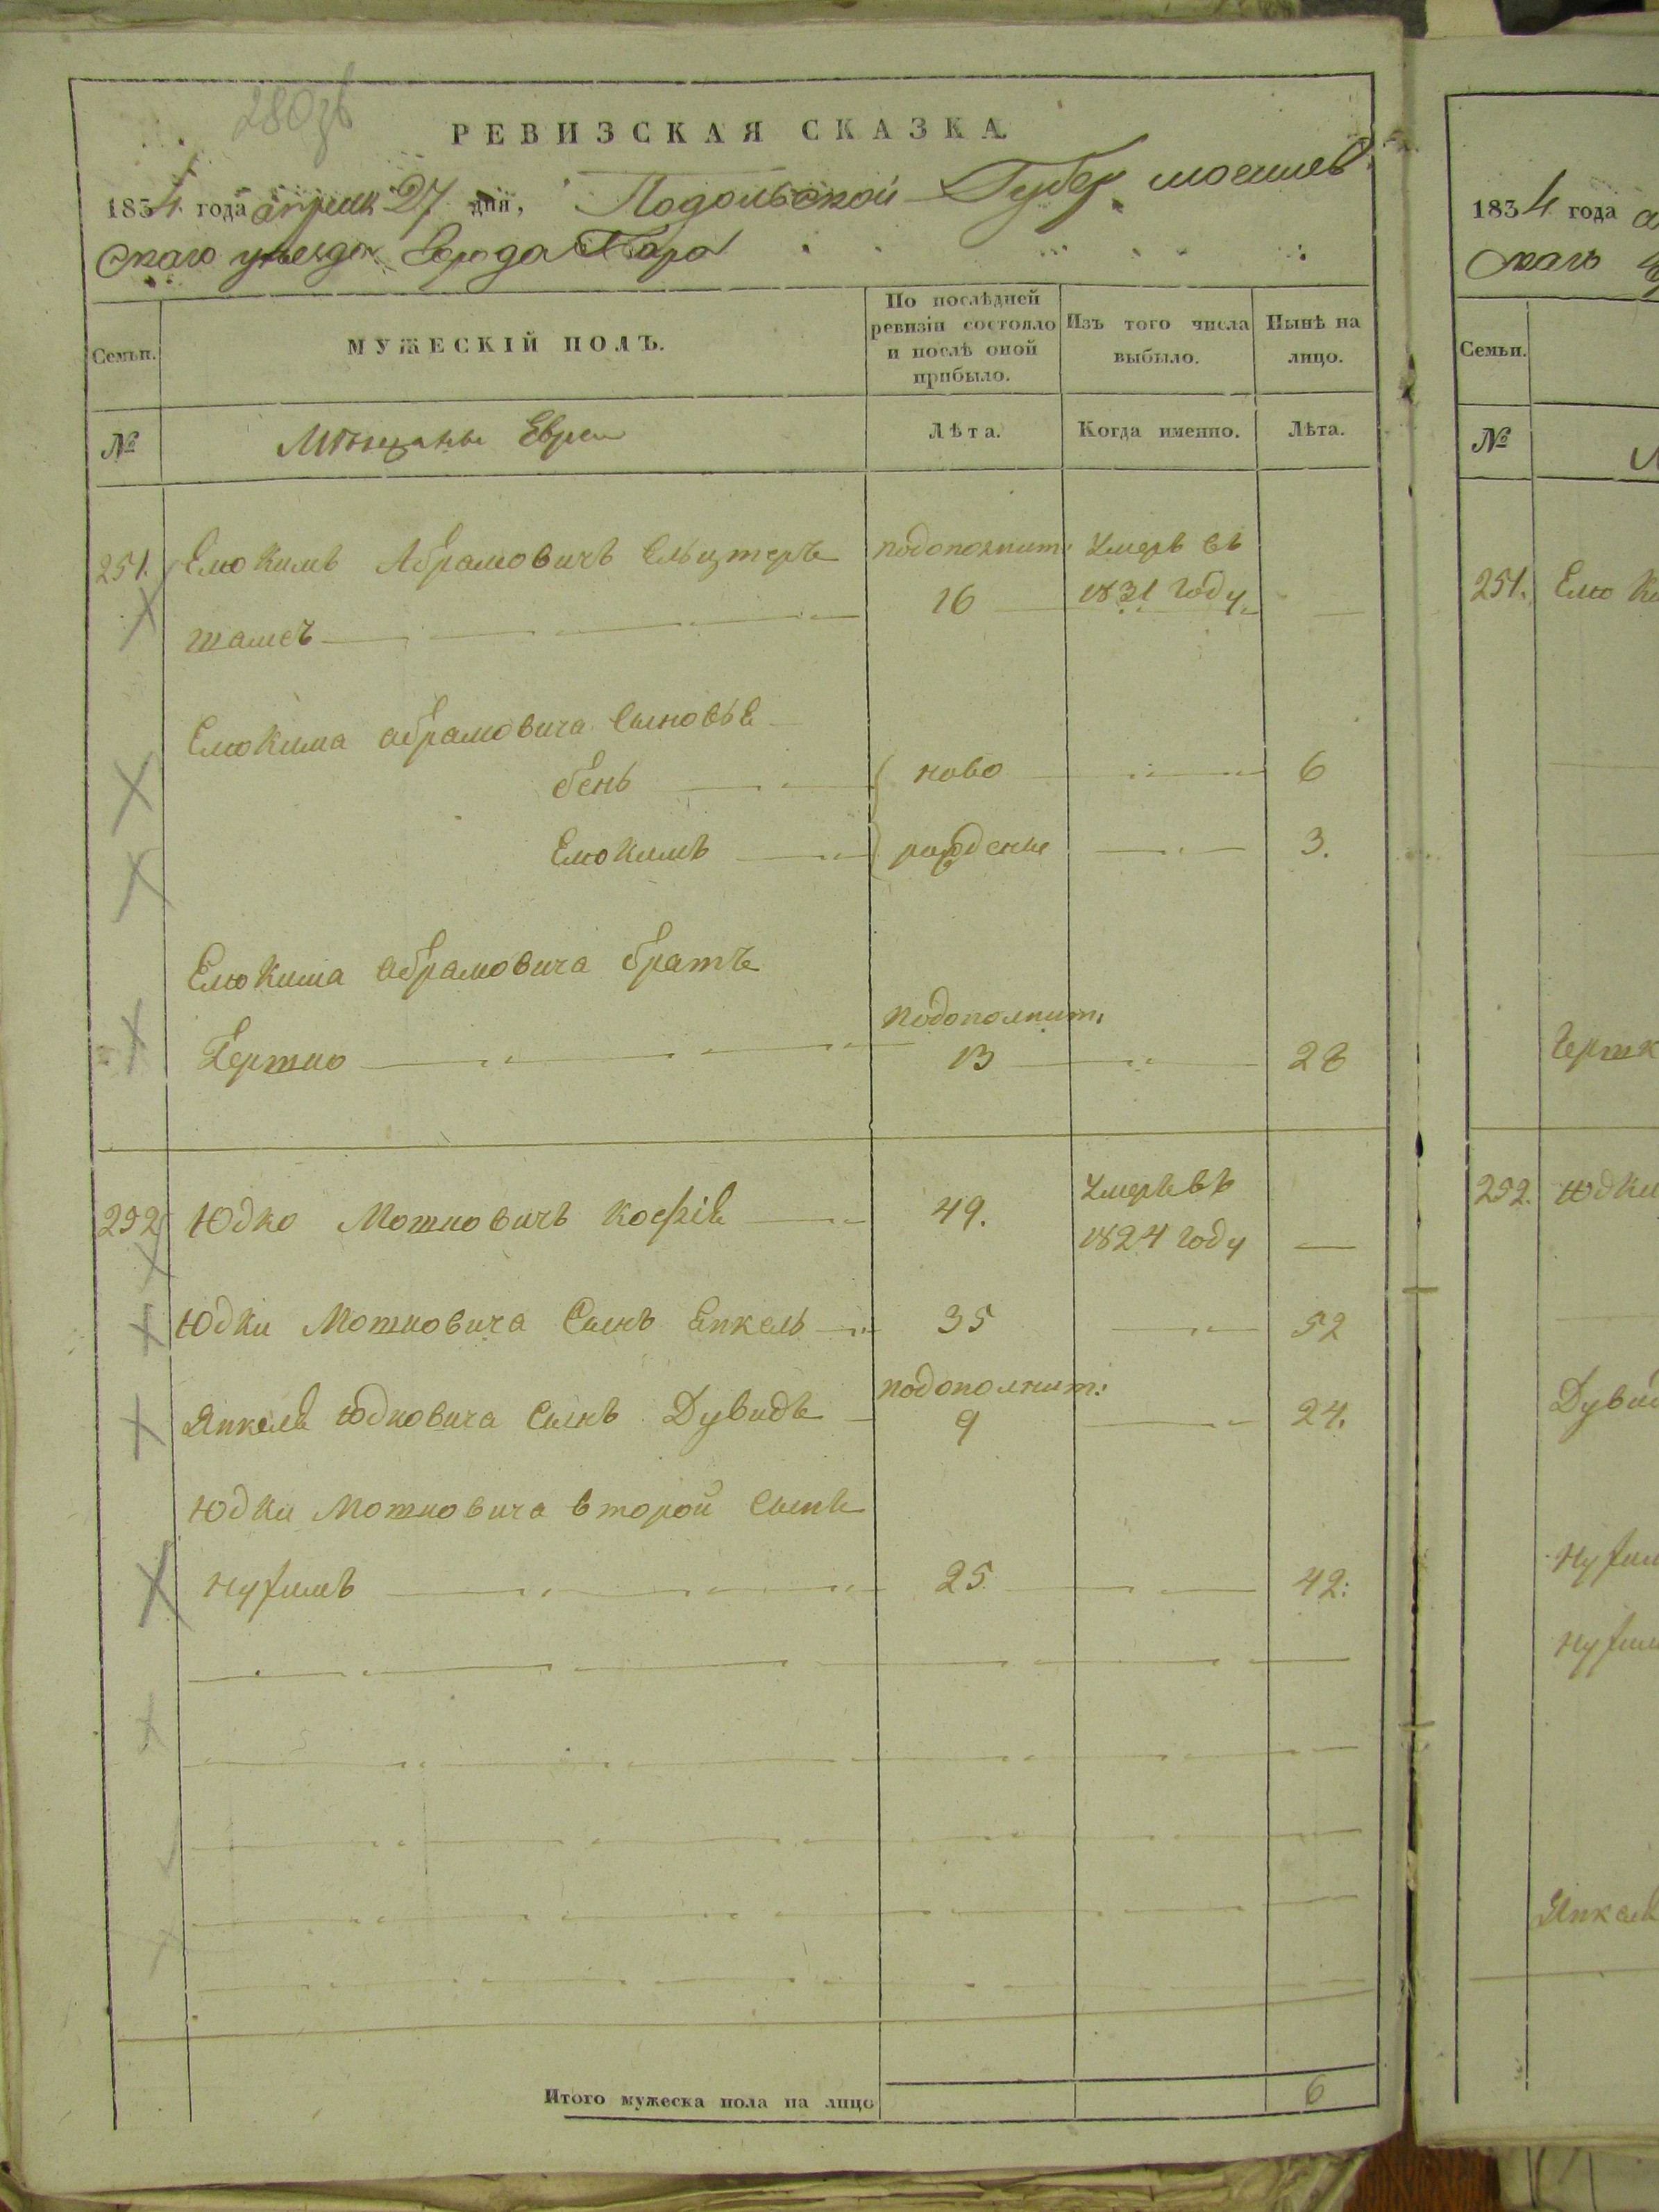 280
РЕВИЗСКАЯ СКАЗКА.
1834 года апреля 27 дня, Подольской Губер. могилев
скаго уъезда Города Бара
Семьи.
МУЖЕСКІЙ ПОЛЪ.
По послѣдней ревизіи состояло и послѣ оной прибыло.
Изъ того числа выбыло.
Нынѣ на лицо.
№
Мѣщаны Евреи
Лѣта.
Когда именно.
Лѣта.
251. Елюкимъ Абрамовичъ подополнит: Умеръ въ
16 1831 году
Елюкима абрамовича Сыновьв
бень ново 6
Елюкимъ рожденые 3.
Елюкима абрамовича братъ
подополнит.
Гершко 13 28
252 Юдко Мошковичъ 49. Умеръ въ
1824 году
Юдки Мошковича Сынъ Янкель 35 52
подополнит:
Янкеля Юдковича Сынъ Дувидъ 9 24.
Юдки Мошковича второй Сынъ
Нухимъ 25 42:
Итого мужеска пола на лицо 6
1834 года
скаго
Семьи.
№
251. Елюки
Гершк
252. Юдки
Дувид
Нухим
Нухим
Янкеля